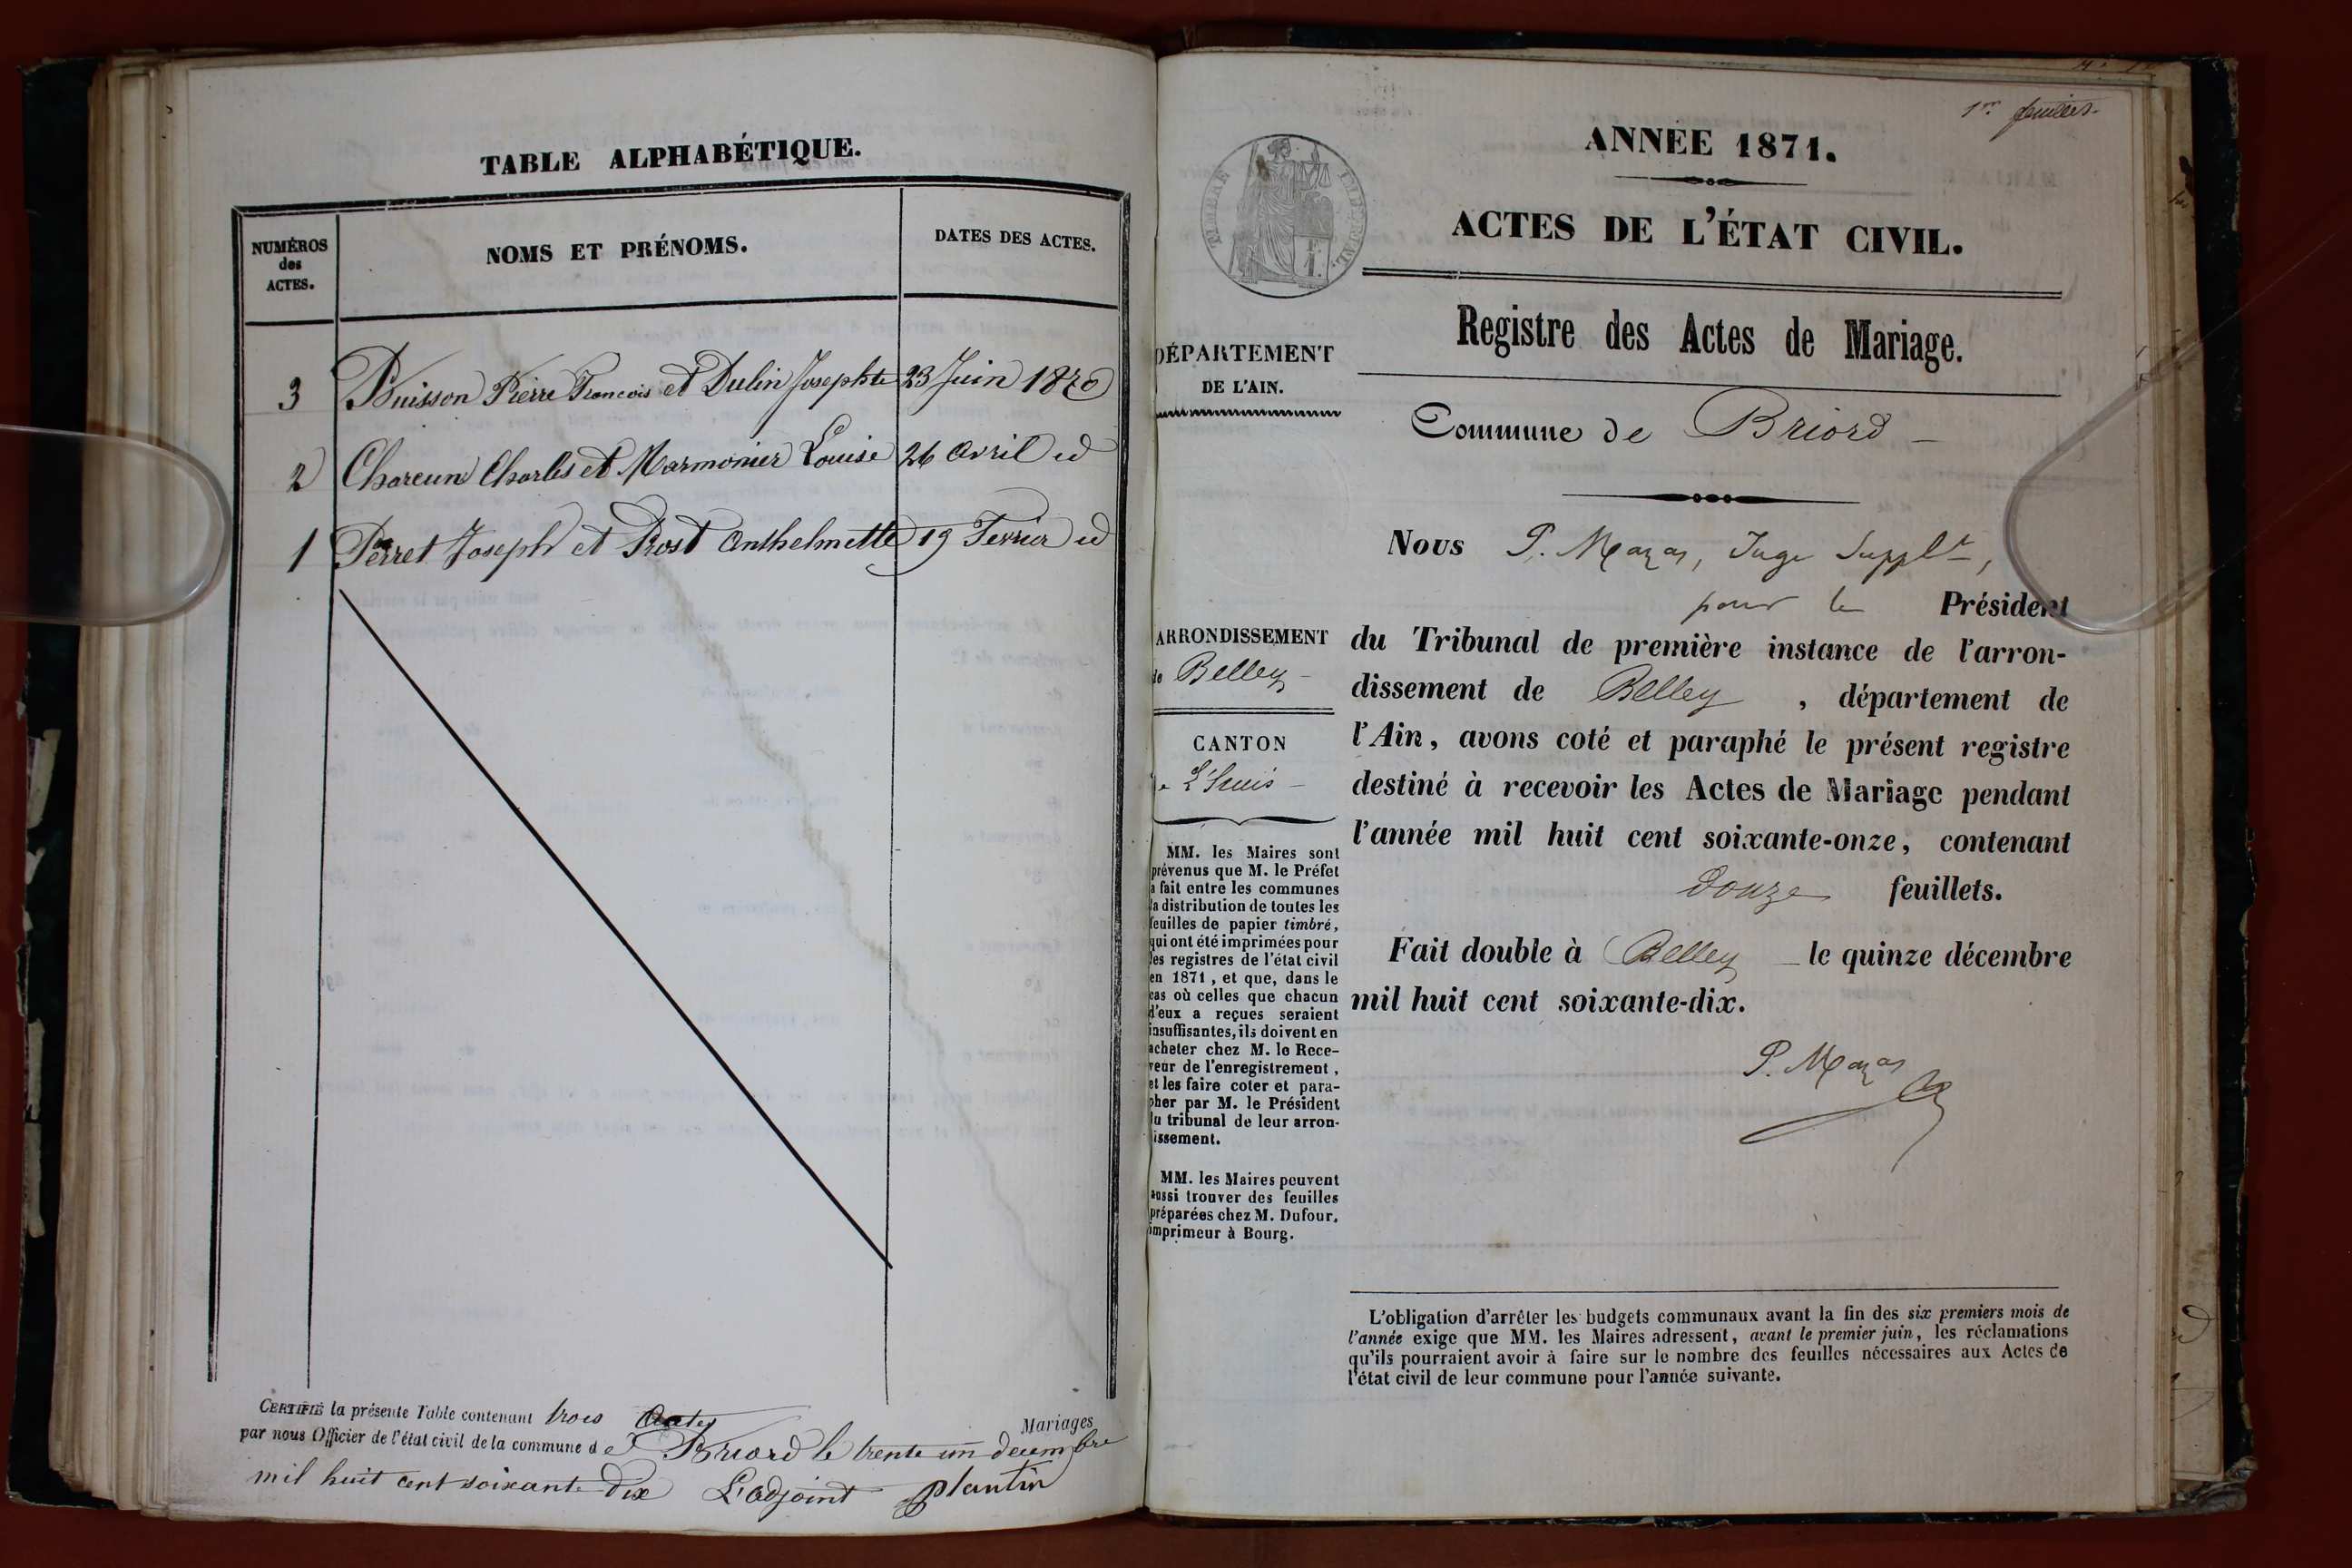 TABLE ALPHABÉTIQUE.
NUMÉROS
des
ACTES.
NOMS ET PRÉNOMS.
DATES DES ACTES.
3 Buisson Pierre François et Dulin Josephte 23 Juin 1870
2 Chareun Charles et Marmonier Louise 26 avril id
1 Perret Joseph et Prost Anthelmette 19 Fevrier id
CERTIFIÉ la présente Table contenant trois Actes Mariages
par nous Officier de l'état civil de la commune de Briord le trente un decembre
mil huit cent soixante Dix L'adjoint Plantin
1er feuillet.
ANNÉE 1871.
ACTES DE L'ÉTAT CIVIL.
TIMBRE IMPÉRIAL
1 F.
DÉPARTEMENT
DE L'AIN.
ARRONDISSEMENT
de Belley
CANTON
de L'huis
MM. les Maires sont
prévenus que M. le Préfet
a fait entre les communes
la distribution de toutes les
feuilles de papier timbré,
qui ont été imprimées pour
les registres de l'état civil
en 1871, et que, dans le
cas où celles que chacun
d'eux a reçues seraient
insuffisantes, ils doivent en
acheter chez M. le Rece-
veur de l'enregistrement,
et les faire coter et para-
pher par M. le Président
du tribunal de leur arron-
dissement.
MM. les Maires peuvent
aussi trouver des feuilles
préparées chez M. Dufour,
imprimeur à Bourg.
Registre des Actes de Mariage.
Commune de Briord
Nous P. Mazas, Juge Supplt,
pour le Président
du Tribunal de première instance de l'arron-
dissement de Belley, département de
l'Ain, avons coté et paraphé le présent registre
destiné à recevoir les Actes de Mariage pendant
l'année mil huit cent soixante-onze, contenant
douze feuillets.
Fait double à Belley le quinze décembre
mil huit cent soixante-dix.
P. Mazas
L'obligation d'arrêter les budgets communaux avant la fin des six premiers mois de
l'année exige que MM. les Maires adressent, avant le premier juin, les réclamations
qu'ils pourraient avoir à faire sur le nombre des feuilles nécessaires aux Actes de
l'état civil de leur commune pour l'année suivante.